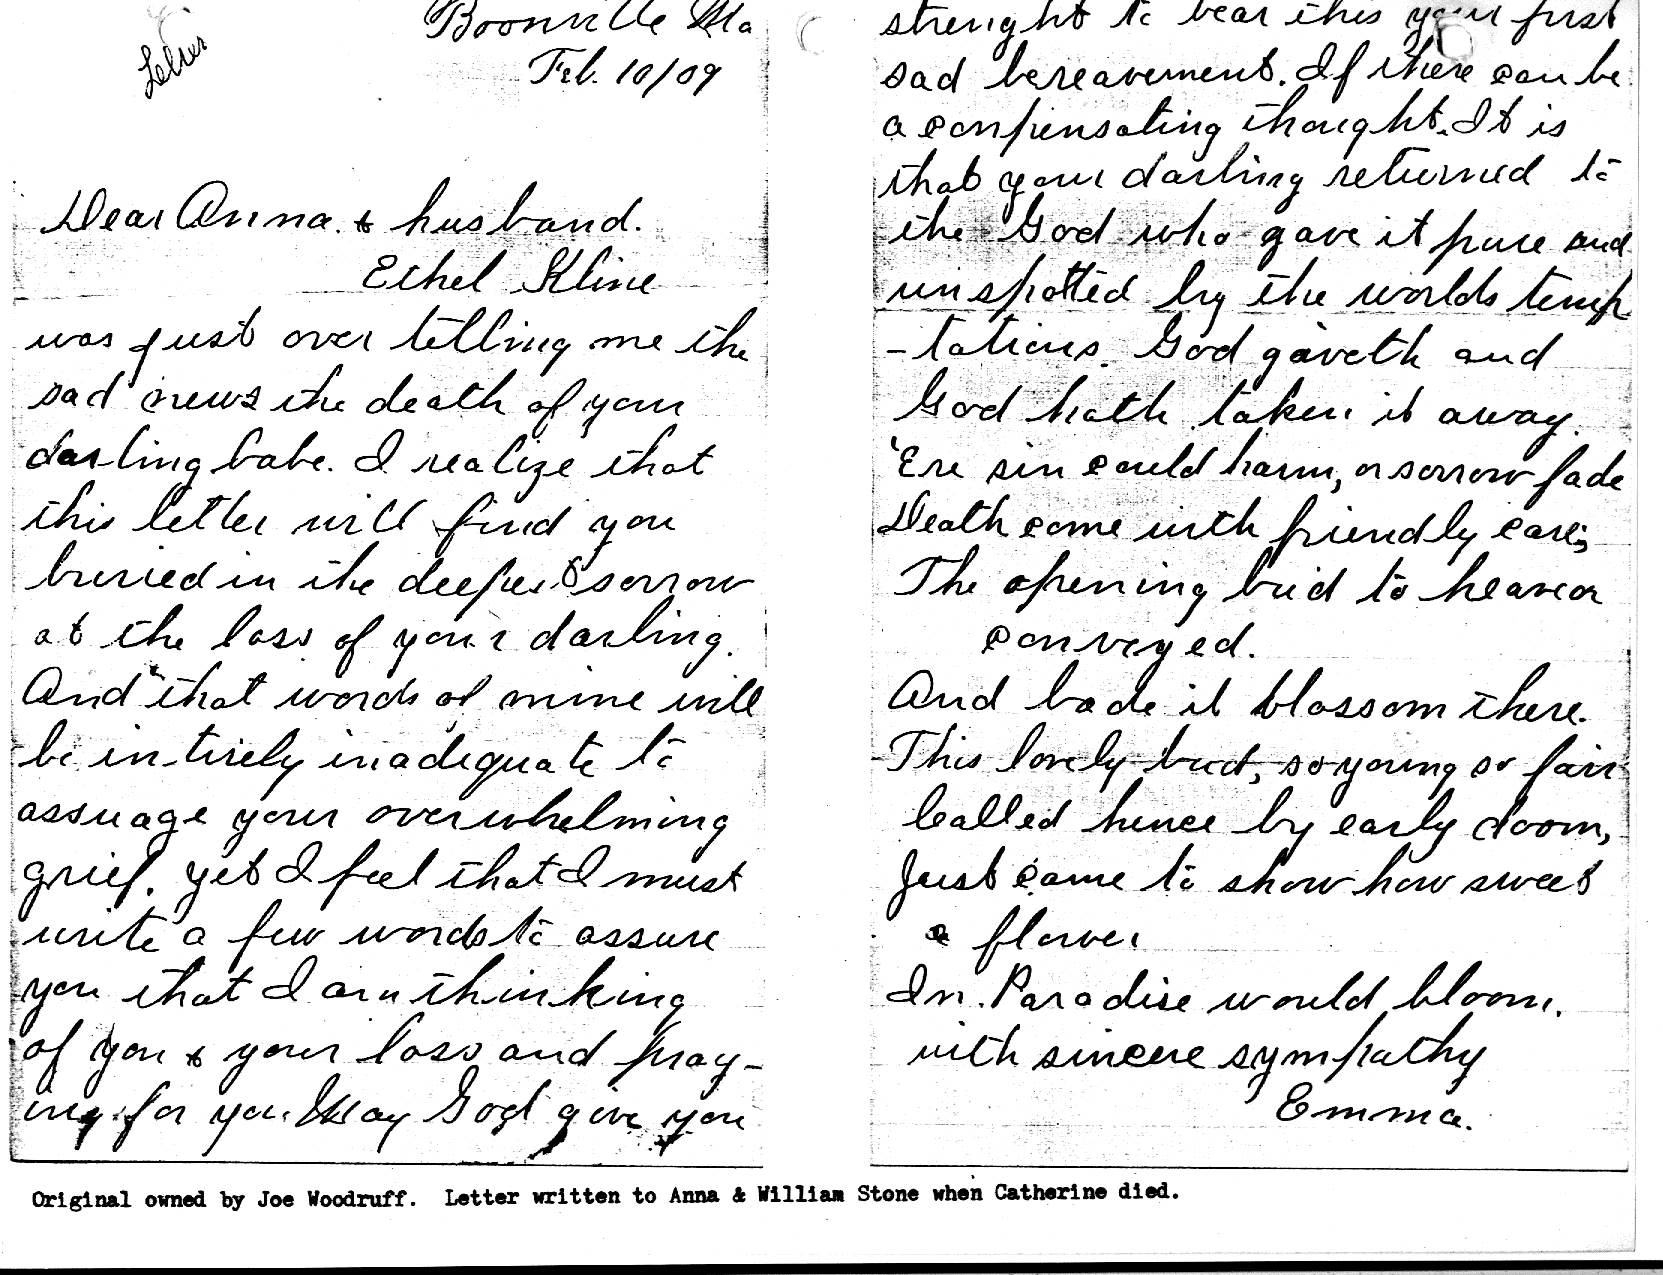 Letter
Boonville Mo
Feb. 10/09
Dear Anna. & husband.
Ethel Kline
was just over telling me the
sad news the death of your
darling babe. I realize that
this letter will find you
buried in the deepest sorrow
at the loss of your darling.
And that words of mine will
be intirely inadequate to
assuage your overwhelming
grief. yet I feel that I must
write a few words to assure
you that I am thinking
of you & your loss and pray-
ing for you. May God give you
strenght to bear this your first
sad bereavement. If there can be
a conpensating thought. It is
that your darling returned to
the God who gave it pure and
unspotted by the worlds temp
-tations. God gaveth and
God hath taken it away.
'Ere sin could harm, or sorrow fade
Death came with friendly care;
The opening bud to heaven
conveyed.
And bade it blossom there.
This lovely bud, so young so fair
Called hence by early doom,
Just came to show how sweet
a flower
In Paradise would bloom.
with sincere sympathy
Emma.
Original owned by Joe Woodruff. Letter written to Anna & William Stone when Catherine died.